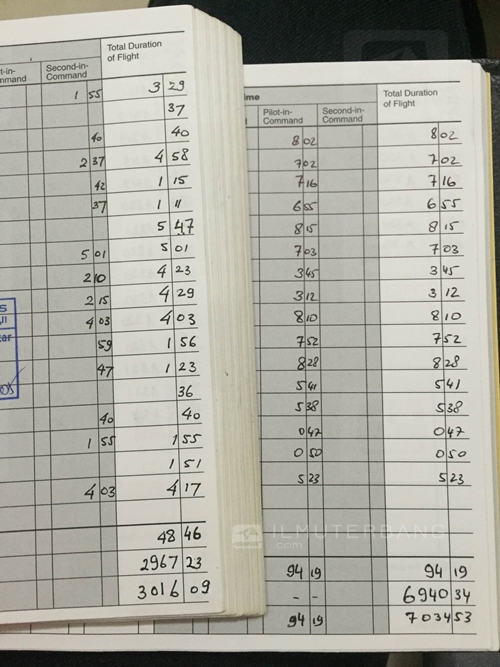 ot-in-
mmand
Second-in-
Command
Total Duration
of Flight
1 55 3 29
37
40 40
2 37 4 58
42 1 15
37 1 11
5 47
5 01 5 01
2 10 4 23
2 15 4 29
4 03 4 03
59 1 56
47 1 23
36
40 40
1 55 1 55
1 51
4 03 4 17
48 46
2967 23
3016 09
ime
Pilot-in-
Command
Second-in-
Command
Total Duration
of Flight
8 02 8 02
7 02 7 02
7 16 7 16
6 55 6 55
8 15 8 15
7 03 7 03
3 45 3 45
3 12 3 12
8 10 8 10
7 52 7 52
8 28 8 28
5 41 5 41
5 38 5 38
0 47 0 47
0 50 0 50
5 23 5 23
94 19 94 19
- - 6940 34
94 19 7034 53
ILMUTERBANG
.com